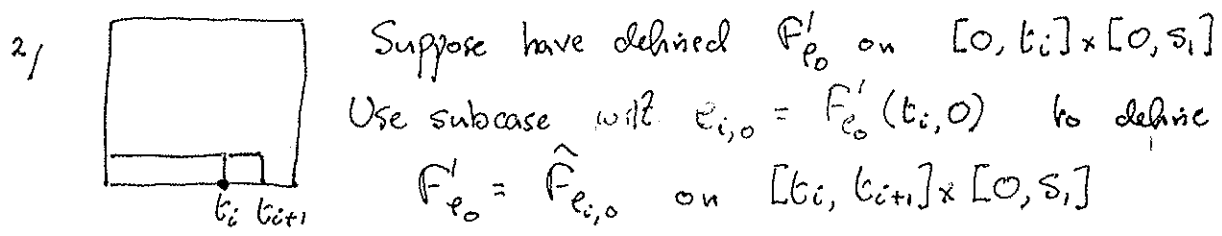 2/ Suppose have defined F'_{e_0} on [0, t_i] x [0, s_1]
Use subcase with e_{i,0} = F'_{e_0}(t_i, 0) to define
F'_{e_0} = \hat{F}_{e_{i,0}} on [t_i, t_{i+1}] x [0, s_1]
t_i t_{i+1}